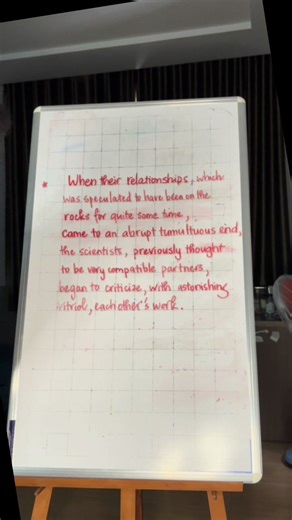 * When their relationships, which
was speculated to have been on the
rocks for quite some time,
came to an abrupt tumultuous end,
the scientists, previously thought
to be very compatible partners,
began to criticize, with astonishing
vitriol, each other's work.